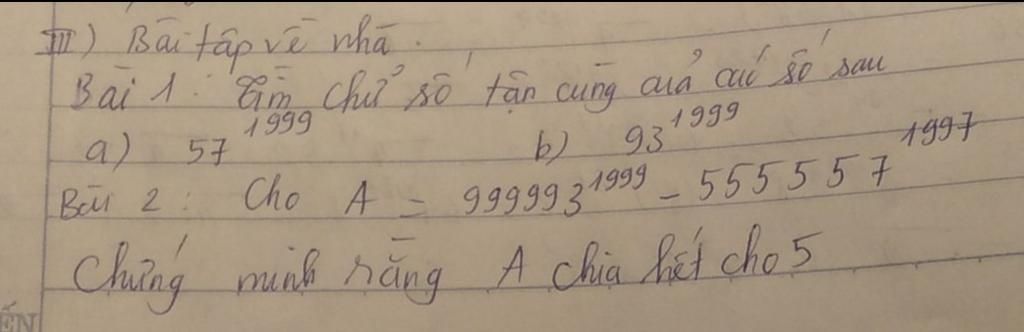 III) Bài tập về nhà.
Bài 1: Tìm chữ số tận cùng của các số sau
a) 57^1999 b) 93^1999
Bài 2: Cho A = 999993^1999 - 555557^1997
Chứng minh rằng A chia hết cho 5
ẾN